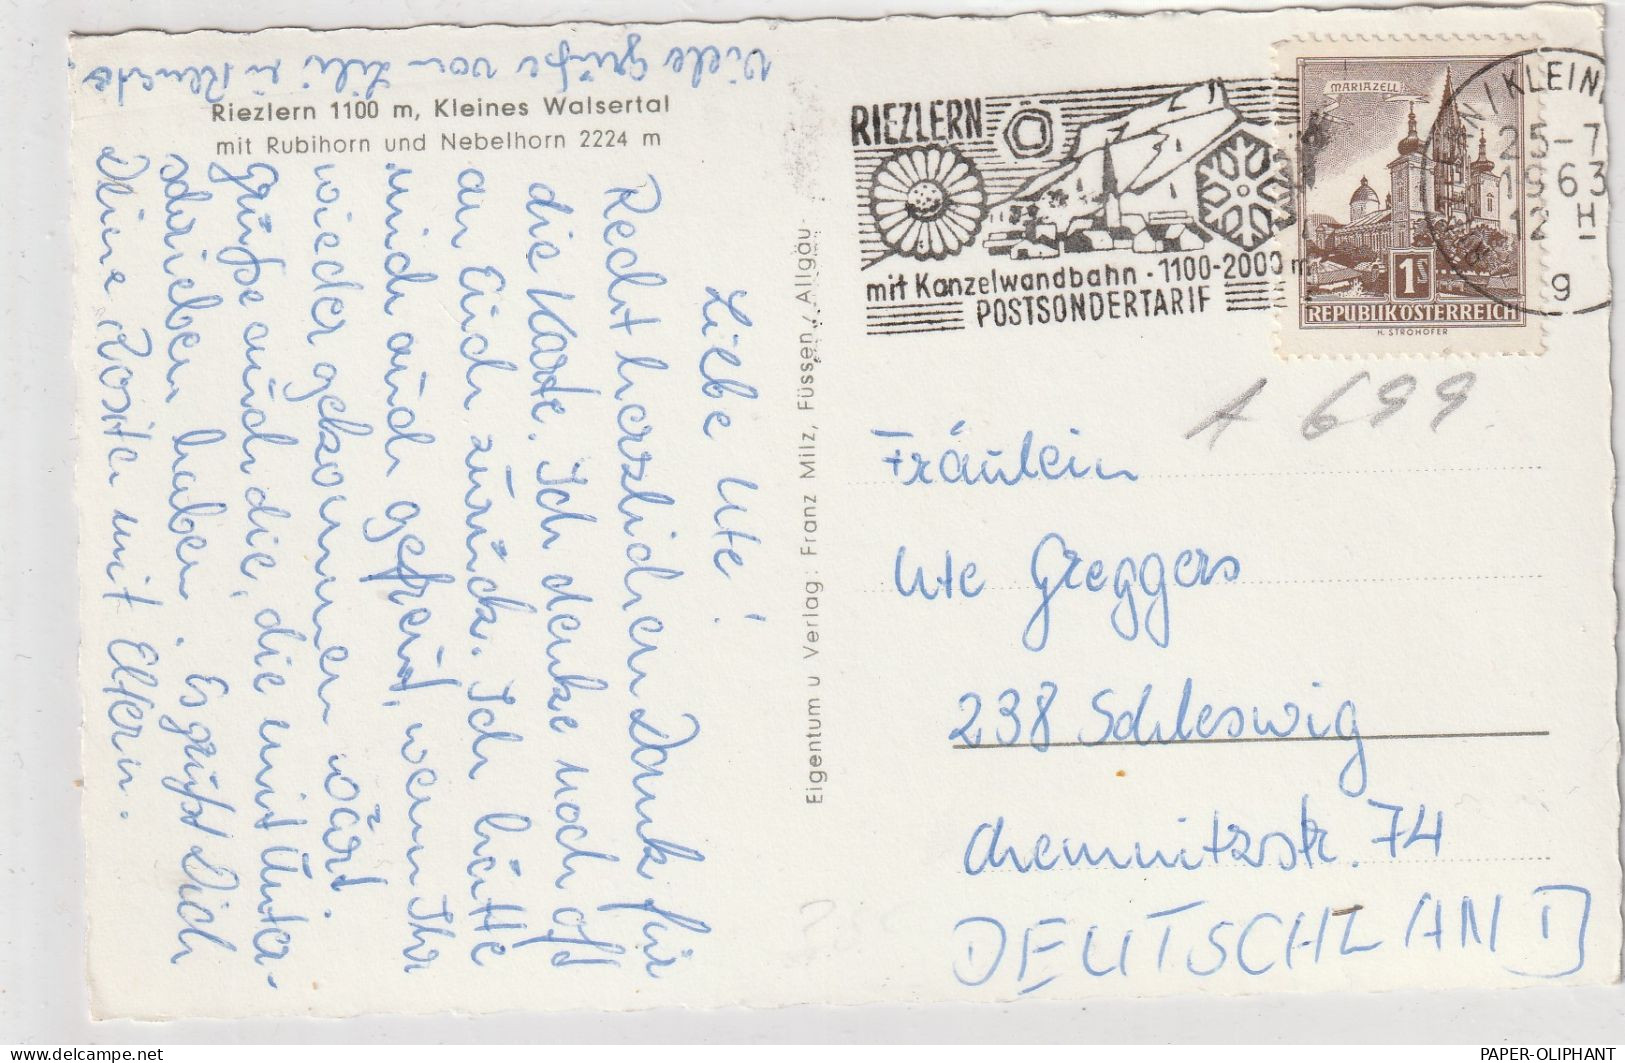 Viele Grüße von Lili u.
Riezlern 1100 m, Kleines Walsertal
mit Rubihorn und Nebelhorn 2224 m
Liebe Ute!
Recht herzlichen Dank für
die Karte. Ich denke noch oft
an Euch zurück. Ich hätte
mich auch gefreut, wenn Ihr
wieder gekommen wärt.
grüße auch die, die mit unter-
schrieben haben. Es grüßt Dich
Deine Rosita mit Eltern.
Eigentum u Verlag: Franz Milz, Füssen / Allgäu
RIEZLERN
mit Kanzelwandbahn · 1100-2000 m
POSTSONDERTARIF
MARIAZELL
1 S
REPUBLIK ÖSTERREICH
H. STROHOFER
KLEIN
25-7
1963
12 H
g
A 699
Fräulein
Ute Greggers
238 Schleswig
Chemnitzstr. 74
DEUTSCHLAND
PAPER-OLIPHANT